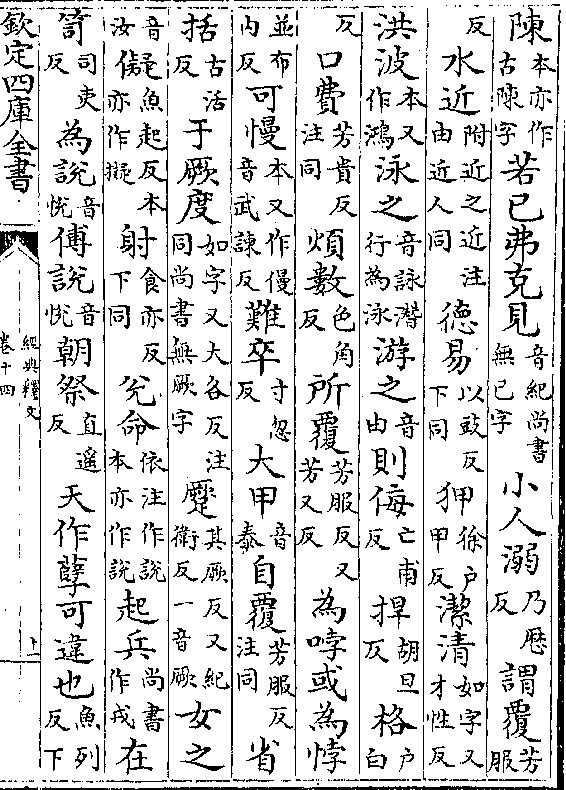 陳本亦作古陳字若已弗克見音紀尚書無已字小人溺乃厯反謂覆芳服
反水近附近之近注由近人同德易以豉反下同狎徐戶甲反潔清如字又才性反
洪波本又作鴻泳之音詠潛行為泳游之音由則侮亡甫反捍胡旦反格戶白
反口費芳貴反注同煩數色角反所覆芳服反又芳又反為哱或為悖
並布內反可慢本又作僈音武諫反難卒寸忽反大甲音泰自覆芳服反注同省
括古活反于厥度如字又大各反注同尚書無厥字蹷其厥反又紀衛反一音厥女之
音汝儗魚起反本亦作擬射食亦反下同兊命依注作說本亦作說起兵尚書作戎在
笥司吏反為說音悅傅說音悅朝祭直遥反天作孽可違也魚列反下
欽定四庫全書
經典釋文
卷十四